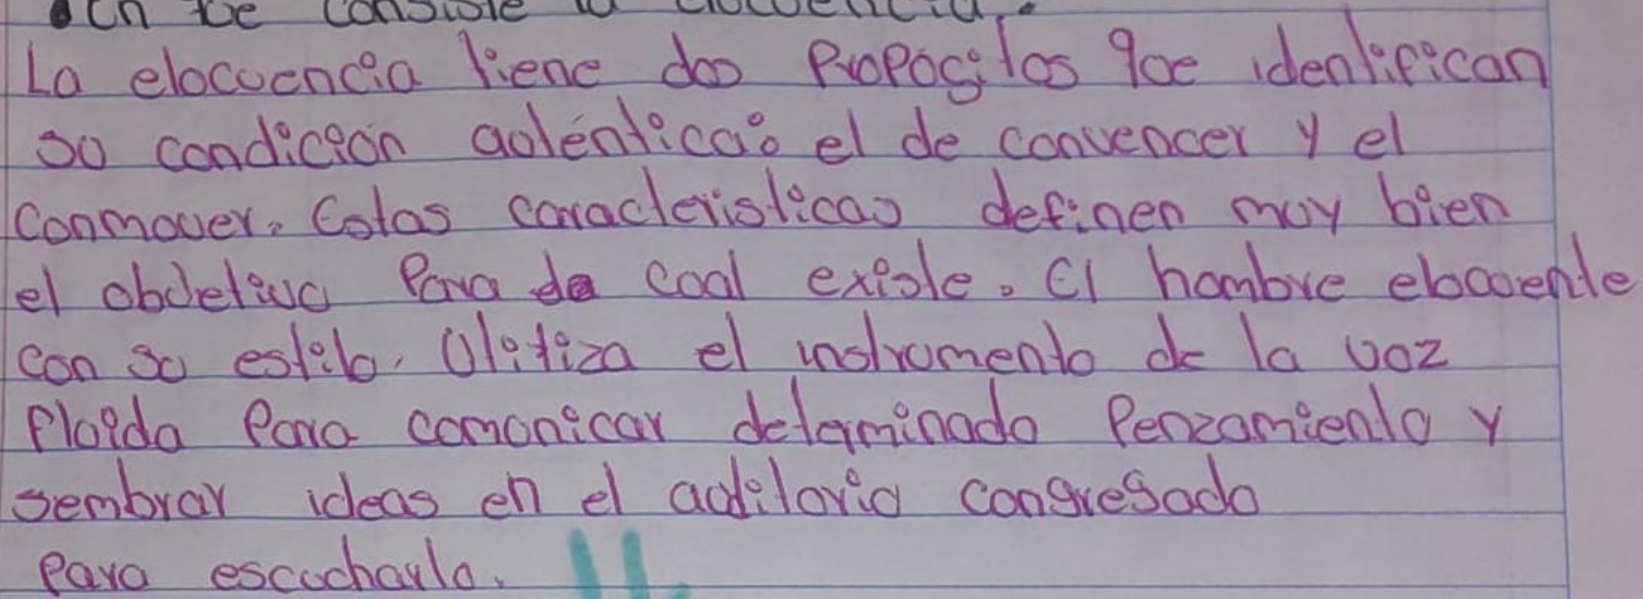 En qe consiste la elocuencia.
La elocuencia tiene dos Propósitos que identifican
su condición auténtica: el de convencer y el
conmover. Estas caracteristicas definen muy bien
el objetivo Para de cual existe. El hombre elocuente
con su estilo. Utiliza el instrumento de la voz
Fluida Para comunicar determinado Penzamiento y
sembrar ideas en el auditorio congregado
Para escucharlo.